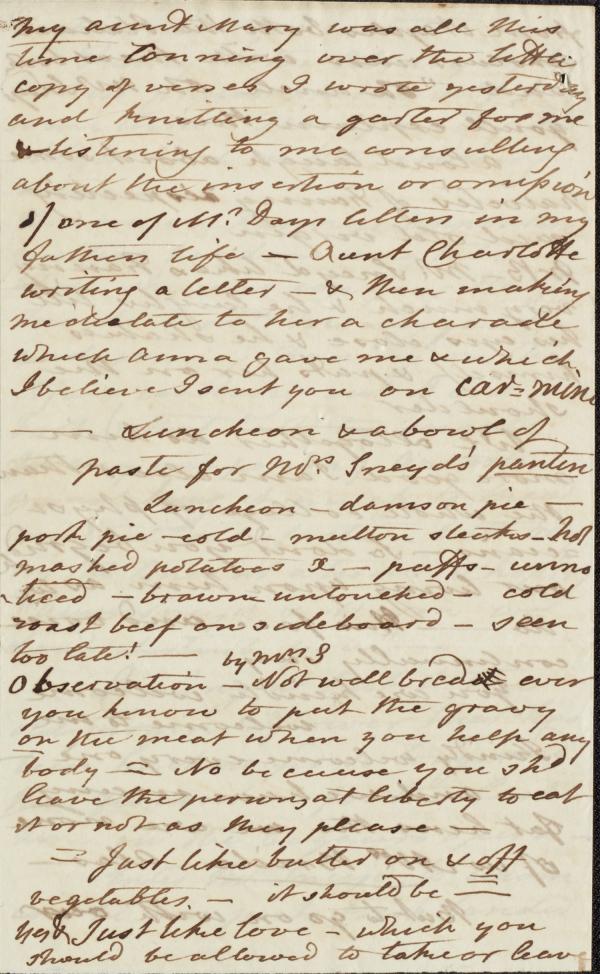 my aunt Mary was all this
time conning over the little
copy of verses I wrote yesterday
and knitting a garter for me
& listening to me consulting
about the insertion or omission
of one of Mr. Days letters in my
fathers life — Aunt Charlotte
writing a letter — & then making
me dictate to her a charade
which Anna gave me & which
I believe I sent you on car=mine
— Luncheon & a bowl of
paste for Mrs. Sneyd's
Luncheon — damson pie —
pork pie — cold — mutton steaks — hot
mashed potatoes — puffs — unno
ticed — brawn untouched — cold
roast beef on sideboard — seen
too late! —
by Mrs S
Observation — Not well bred ever
you know to put the gravy
on the meat when you help any
body — No because you shd
leave the person at liberty to eat
it or not as they please —
= Just like butter on & off
vegetables. — it should be
yes Just like love — which you
should be allowed to take or leave